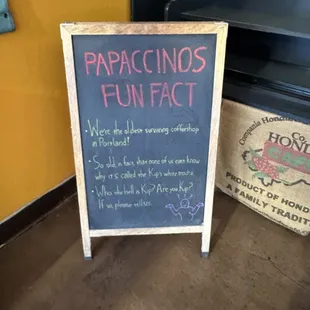 PAPACCINOS
FUN FACT
• We're the oldest surviving coffeeshop
in Portland!
• So old, in fact, that none of us even know
why it's called the Kip's white mocha.
• Who the hell is Kip? Are you Kip?
If so, please call us.
Compania Hondu
Co
HOND
CAFE
PRODUCT OF HON
A FAMILY TRADIT